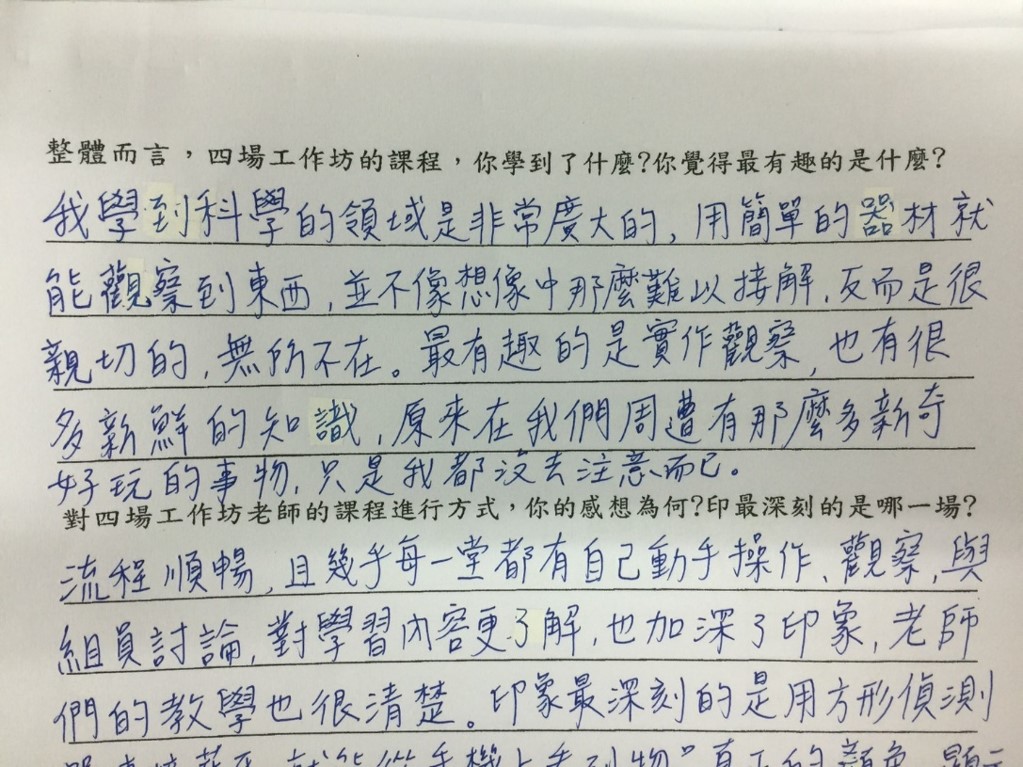 整體而言，四場工作坊的課程，你學到了什麼?你覺得最有趣的是什麼?
我學到科學的領域是非常廣大的，用簡單的器材就
能觀察到東西，並不像想像中那麼難以接解，反而是很
親切的，無所不在。最有趣的是實作觀察，也有很
多新鮮的知識，原來在我們周遭有那麼多新奇
好玩的事物，只是我都沒去注意而已。
對四場工作坊老師的課程進行方式，你的感想為何?印最深刻的是哪一場?
流程順暢，且幾乎每一堂都有自己動手操作、觀察，與
組員討論，對學習內容更了解，也加深了印象，老師
們的教學也很清楚。印象最深刻的是用方形偵測
就能從手機上看到物品真正的顏色，顯示